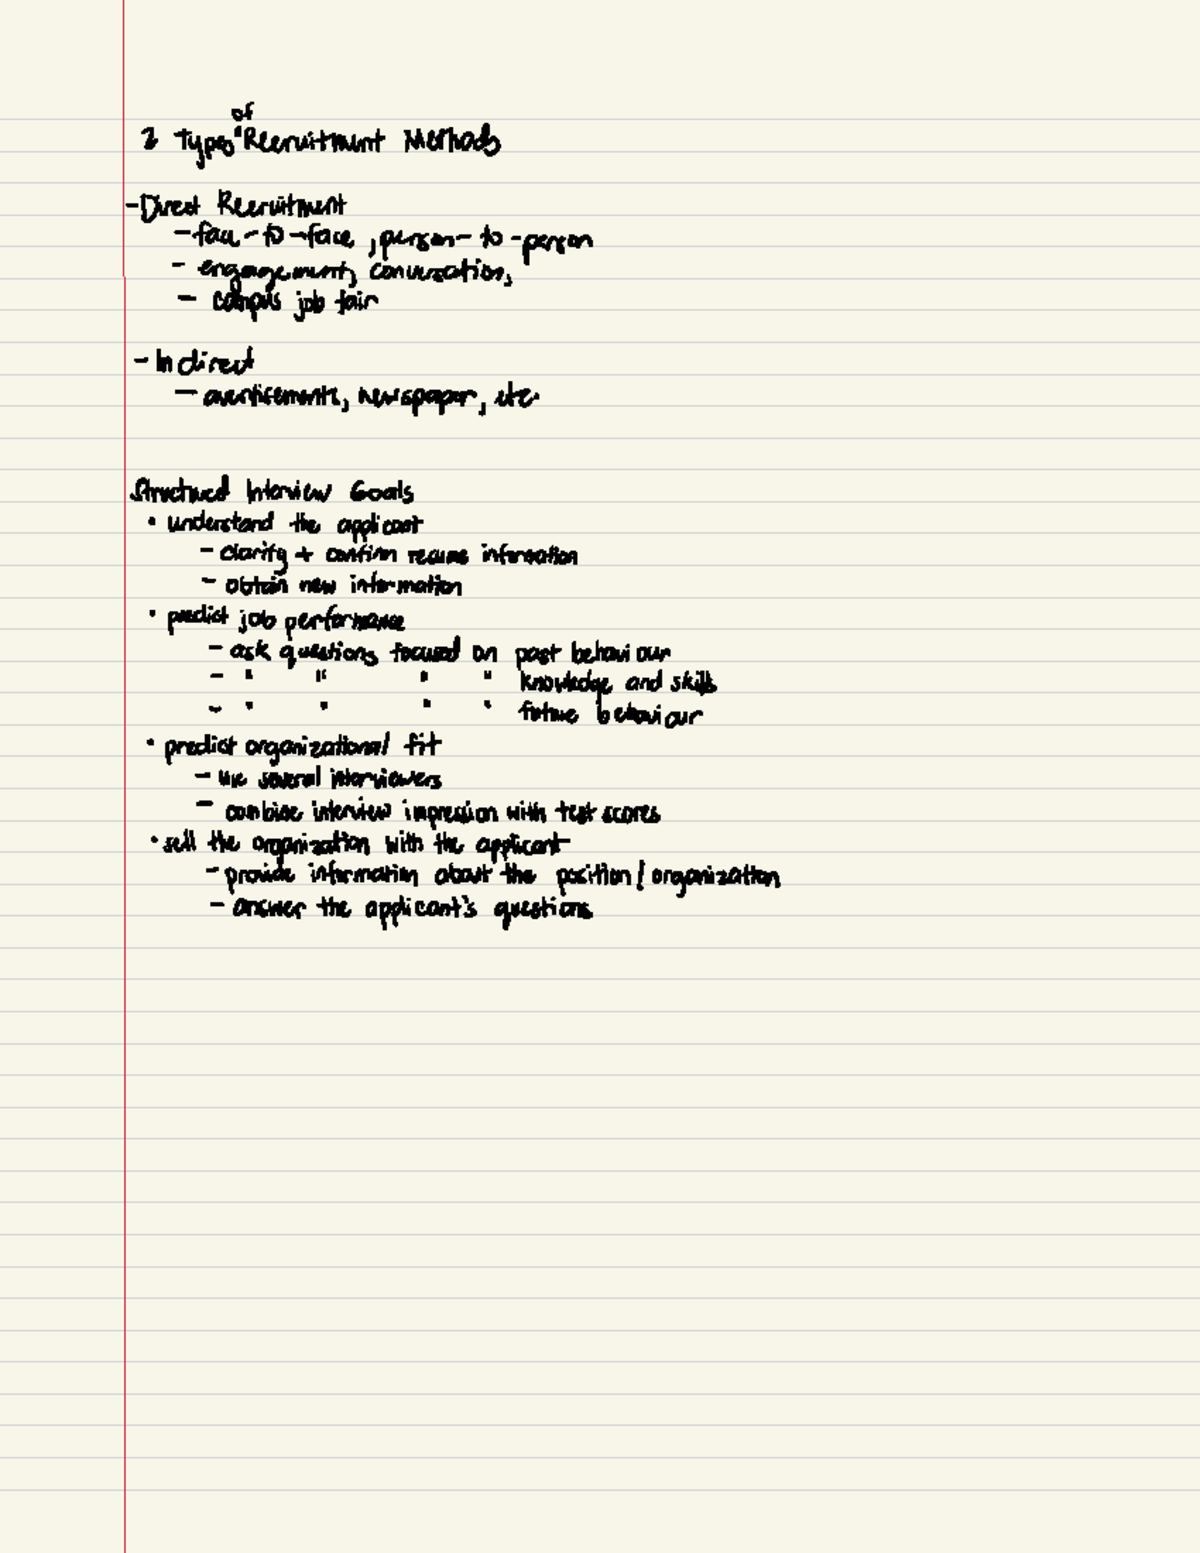 2 Types of Recruitment Methods
- Direct Recruitment
- face-to-face, person-to-person
- engagement, conversation,
- campus job fair
- Indirect
- avertisements, newspaper, etc.
Structured Interview Goals
• understand the applicant
- clarify + confirm resume information
- obtain new information
• predict job performance
- ask questions focused on past behaviour
- " " " " knowledge and skills
- " " " " future behaviour
• predict organizational fit
- use several interviewers
- combine interview impression with test scores
• sell the organization with the applicant
- provide information about the position/organization
- answer the applicant's questions